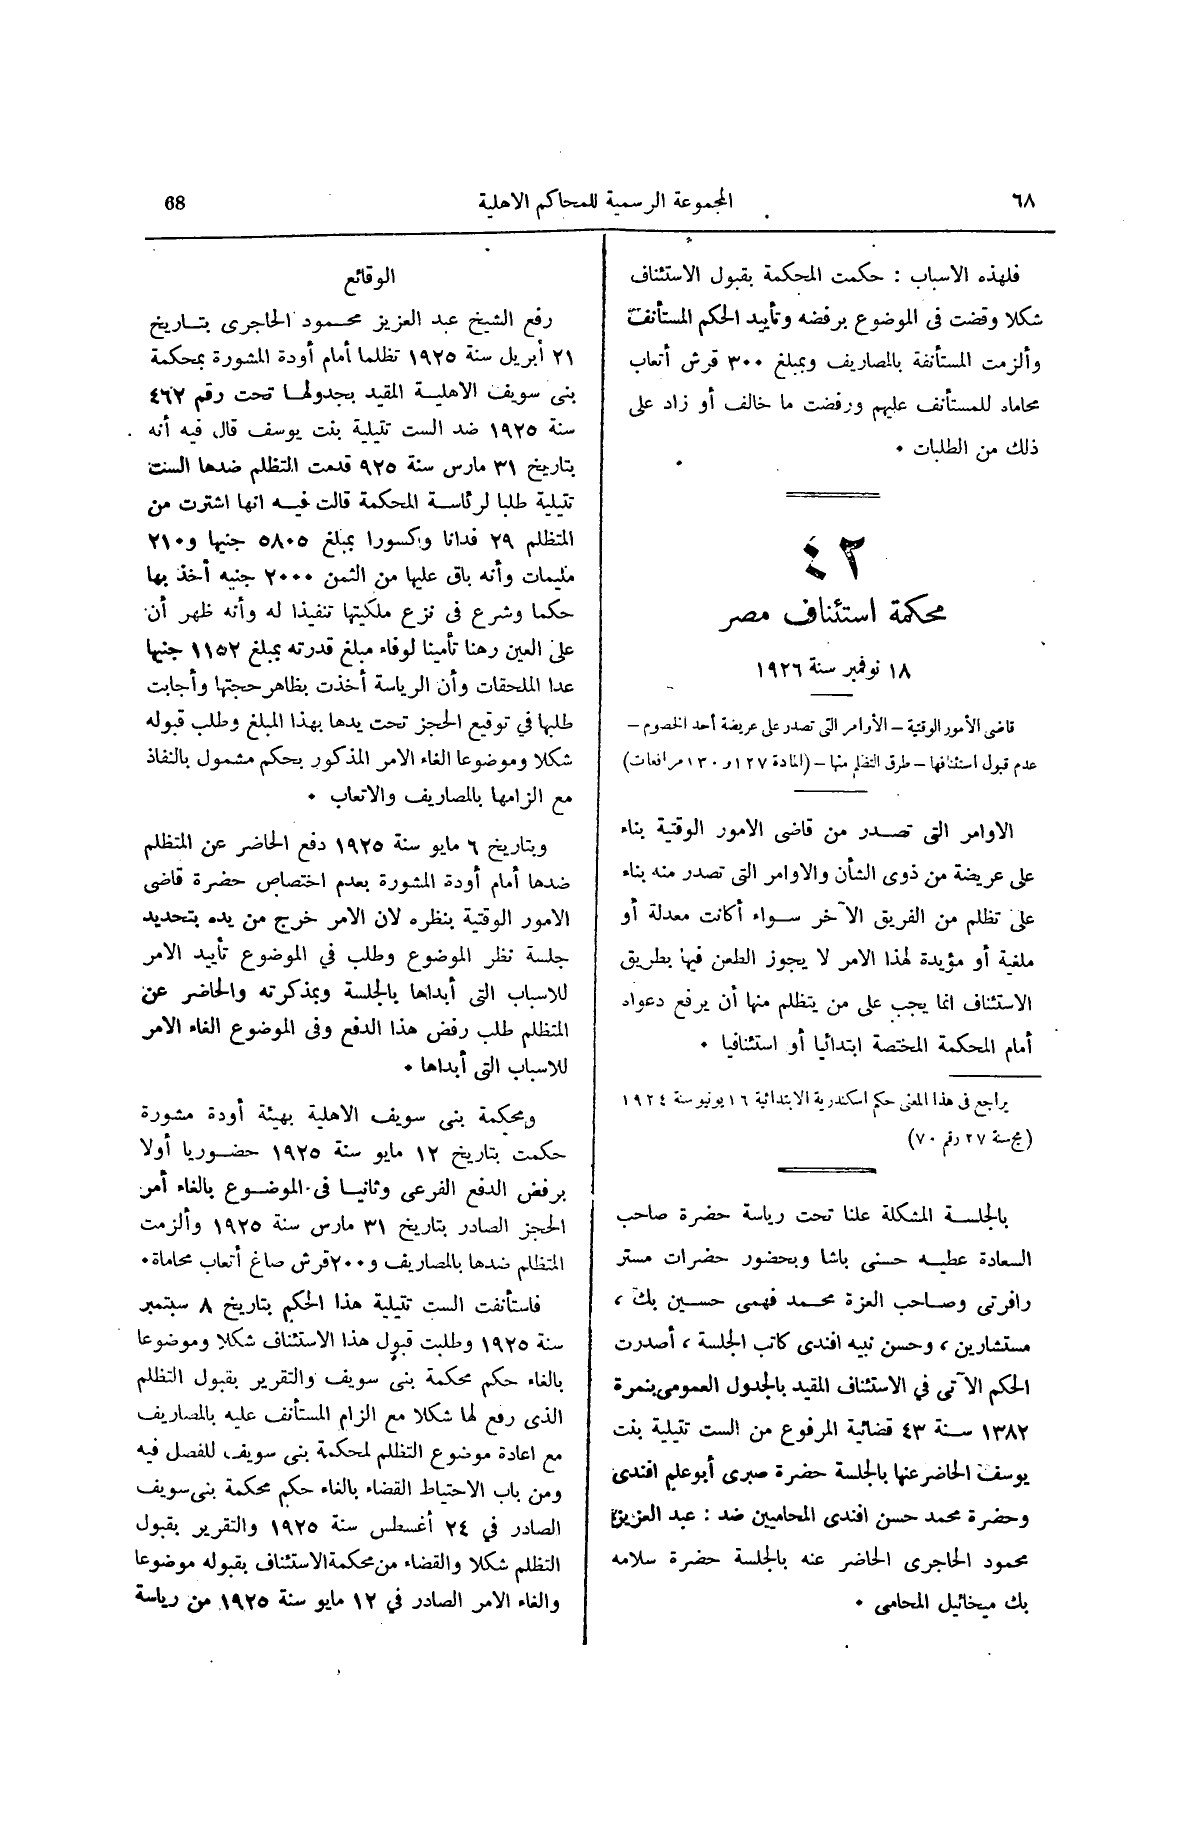 ٦٨ المجموعة الرسمية للمحاكم الاهلية 68
فلهذه الاسباب : حكمت المحكمة بقبول الاستئناف
شكلا وقضت فى الموضوع برفضه وتأييد الحكم المستأنف
وألزمت المستأنفة بالمصاريف وبمبلغ ٣٠٠ قرش أتعاب
محاماه للمستأنف عليهم ورفضت ما خالف أو زاد على
ذلك من الطلبات ٠
٤٢
محكمة استئناف مصر
١٨ نوفمبر سنة ١٩٢٦
قاضى الأمور الوقتية – الأوامر التى تصدر على عريضة أحد الخصوم –
عدم قبول استئنافها – طرق التظلم منها – (المادة ١٢٧ و ١٣٠ مرافعات)
الاوامر التى تصدر من قاضى الامور الوقتية بناء
على عريضة من ذوى الشأن والاوامر التى تصدر منه بناء
على تظلم من الفريق الآخر سواء أكانت معدلة أو
ملغية أو مؤيدة لهذا الامر لا يجوز الطعن فيها بطريق
الاستئناف انما يجب على من يتظلم منها أن يرفع دعواه
أمام المحكمة المختصة ابتدائيا أو استئنافيا ٠
يراجع فى هذا المعنى حكم اسكندرية الابتدائية ١٦ يونيو سنة ١٩٢٤
(مج سنة ٢٧ رقم ٧٠)
بالجلسة المشكلة علنا تحت رياسة حضرة صاحب
السعادة عطيه حسنى باشا وبحضور حضرات مستر
رافرتى وصاحب العزة محمد فهمى حسين بك ،
مستشارين ، وحسن نبيه افندى كاتب الجلسة ، أصدرت
الحكم الآتى في الاستئناف المقيد بالجدول العمومى بنمرة
١٣٨٢ سنة ٤٣ قضائية المرفوع من الست تتيلية بنت
يوسف الحاضر عنها بالجلسة حضرة صبرى أبو علم افندى
وحضرة محمد حسن افندى المحاميين ضد : عبد العزيز
محمود الحاجرى الحاضر عنه بالجلسة حضرة سلامه
بك ميخائيل المحامى ٠
الوقائع
رفع الشيخ عبد العزيز محمود الحاجرى بتاريخ
٢١ أبريل سنة ١٩٢٥ تظلما أمام أودة المشورة بمحكمة
بنى سويف الاهلية المقيد بجدولها تحت رقم ٤٦٢
سنة ١٩٢٥ ضد الست تتيلية بنت يوسف قال فيه أنه
بتاريخ ٣١ مارس سنة ٩٢٥ قدمت المتظلم ضدها الست
تتيلية طلبا لرئاسة المحكمة قالت فيه انها اشترت من
المتظلم ٢٩ فدانا وكسورا بمبلغ ٥٨٠٥ جنيها و٢١٠
مليمات وأنه باق عليها من الثمن ٢٠٠٠ جنيه أخذ بها
حكما وشرع فى نزع ملكيتها تنفيذا له وأنه ظهر أن
على العين رهنا تأمينا لوفاء مبلغ قدرته بمبلغ ١١٥٢ جنيها
عدا الملحقات وأن الرياسة أخذت بظاهر حجتها وأجابت
طلبها في توقيع الحجز تحت يدها بهذا المبلغ وطلب قبوله
شكلا وموضوعا الغاء الامر المذكور بحكم مشمول بالنفاذ
مع الزامها بالمصاريف والاتعاب ٠
وبتاريخ ٦ مايو سنة ١٩٢٥ دفع الحاضر عن المتظلم
ضدها أمام أودة المشورة بعدم اختصاص حضرة قاضى
الامور الوقتية بنظره لان الامر خرج من يده بتحديد
جلسة نظر الموضوع وطلب في الموضوع تأييد الامر
للاسباب التى أبداها بالجلسة وبمذكرته والحاضر عن
المتظلم طلب رفض هذا الدفع وفى الموضوع الغاء الامر
للاسباب التى أبداها ٠
ومحكمة بنى سويف الاهلية بهيئة أودة مشورة
حكمت بتاريخ ١٢ مايو سنة ١٩٢٥ حضوريا أولا
برفض الدفع الفرعى وثانيا فى الموضوع بالغاء أمر
الحجز الصادر بتاريخ ٣١ مارس سنة ١٩٢٥ وألزمت
المتظلم ضدها بالمصاريف و٢٠٠ قرش صاغ أتعاب محاماة٠
فاستأنفت الست تتيلية هذا الحكم بتاريخ ٨ سبتمبر
سنة ١٩٢٥ وطلبت قبول هذا الاستئناف شكلا وموضوعا
بالغاء حكم محكمة بنى سويف والتقرير بقبول التظلم
الذى رفع لها شكلا مع الزام المستأنف عليه بالمصاريف
مع اعادة موضوع التظلم لمحكمة بنى سويف للفصل فيه
ومن باب الاحتياط القضاء بالغاء حكم محكمة بنى سويف
الصادر في ٢٤ أغسطس سنة ١٩٢٥ والتقرير بقبول
التظلم شكلا والقضاء من محكمة الاستئناف بقبوله موضوعا
والغاء الامر الصادر في ١٢ مايو سنة ١٩٢٥ من رياسة